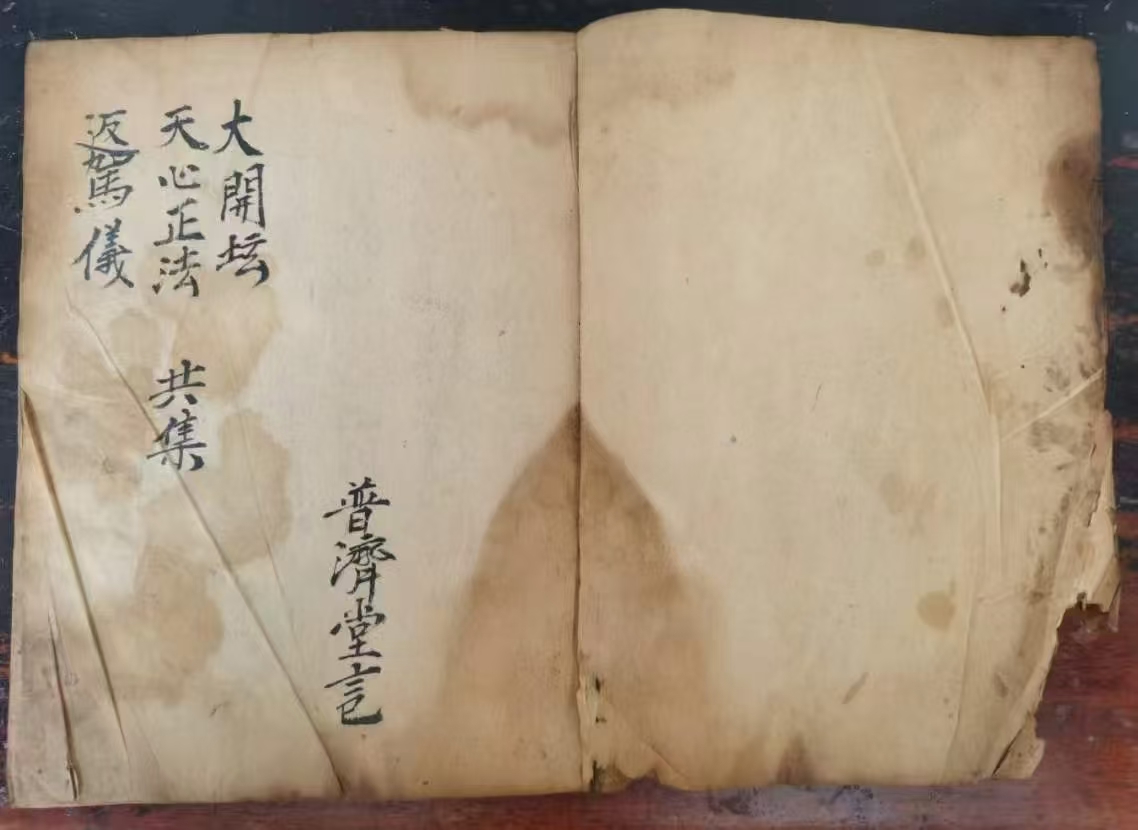 大開坛
天心正法 共集
返駕儀
普濟堂記